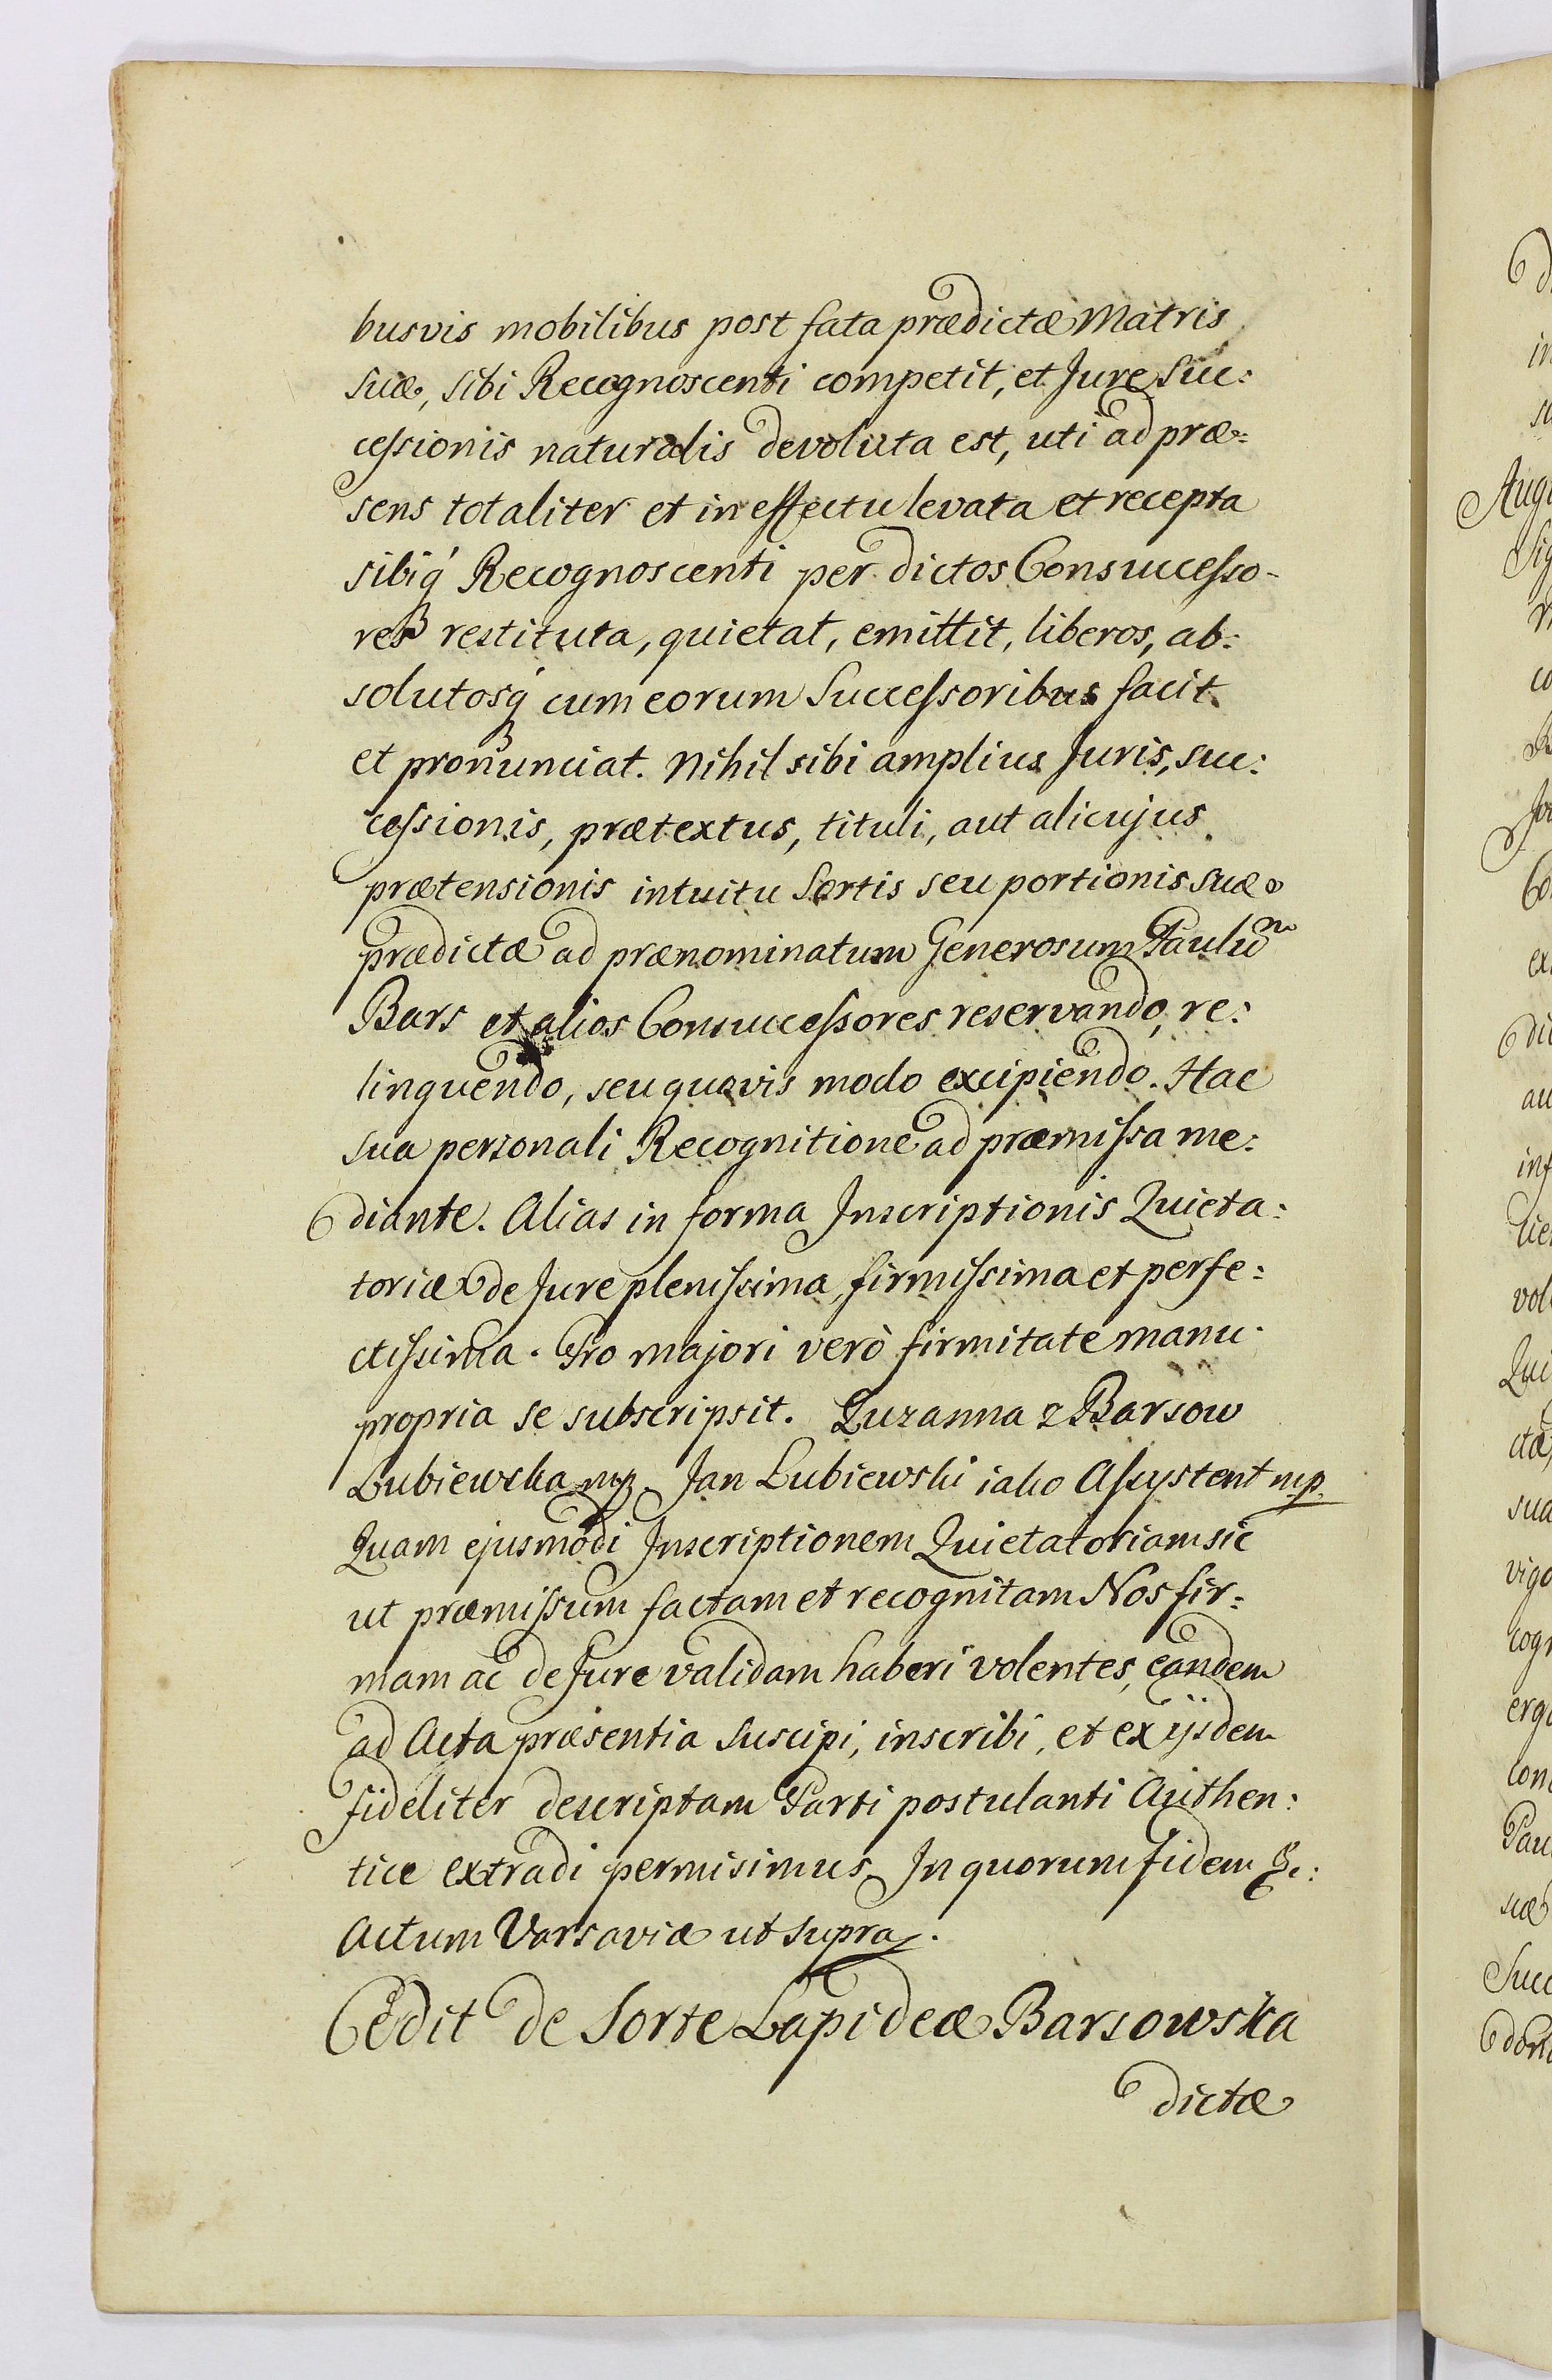 busvis mobilibus post fata prædictæ Matris
suæ, sibi Recognoscenti competit, et Jure Suc:
cessionis naturalis devoluta est, uti ad præ:
sens totaliter et in effectu levata et recepta
sibiq́ Recognoscenti per dictos Consuccesso-
res restituta, quietat, emittit, liberos, ab:
solutosq́ cum eorum Successoribus facit
et pronunciat. Nihil sibi amplius Juris, suc:
cessionis, prætextus, tituli, aut alicujus
prætensionis intuitu Sortis seu portionis suæ
prædictæ ad prænominatum Generosum Paulum
Bars et alios Consuccessores reservando, re:
linquendo, seu quovis modo excipiendo. Hac
sua personali Recognitione ad præmissa me:
diante. Alias in forma Inscriptionis Quieta:
toriæ de Jure plenissima, firmissima et perfe:
ctissima. Pro majori verò firmitate manu
propria se subscripsit. Zuzanna z Barsow
Lubiewska mp. Jan Lubiewski iako Assystent mp.
Quam ejusmodi Inscriptionem Quietatoriam sic
ut præmissum factam et recognitam Nos fir:
mam ac de Jure validam haberi volentes, eandem
ad Acta præsentia suscipi, inscribi, et ex ijsdem
fideliter descriptam Parti postulanti Authen:
tice extradi permisimus. In quorum fidem &c:
Actum Varsaviæ ut supra.
Cedit de Sorte Lapideæ Barsowska
dictæ